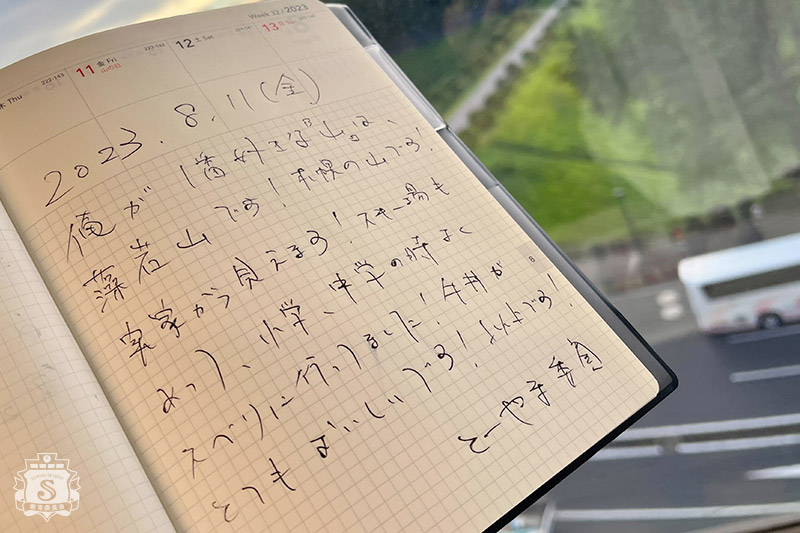 Week 32 / 2023
木 Thu
222-143
11 金 Fri
山の日
223-142
12 土 Sat
13 日 Sun
2023.8.11(金)
俺が1番好きな山は、
藻岩山です!札幌の山です!
実家から見えます!スキー場も
あって、小学、中学の時よく
スベリに行ってました!牛丼が
とてもおいしいです!以上です!
とーやま委員
8
S